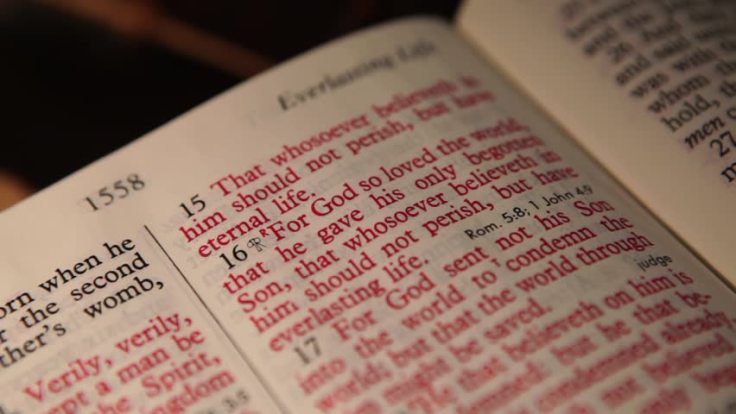 1558
Everlasting Life
orn when he
r the second
ther's womb,
Verily, verily,
ept a man be
the Spirit,
ngdom
3:5
15 That whosoever believeth in
him should not perish, but have
eternal life.
16 For God so loved the world,
that he gave his only begotten
Son, that whosoever believeth in
him should not perish, but have
everlasting life. Rom. 5:8; 1 John 4:9
17 For God sent not his Son
into the world to condemn the
world; but that the world through
might be saved. judge
that believeth on him is
demned: but he that be-
condemned already,
not believed
and
and said
was with
whom th
hold, th
men
27